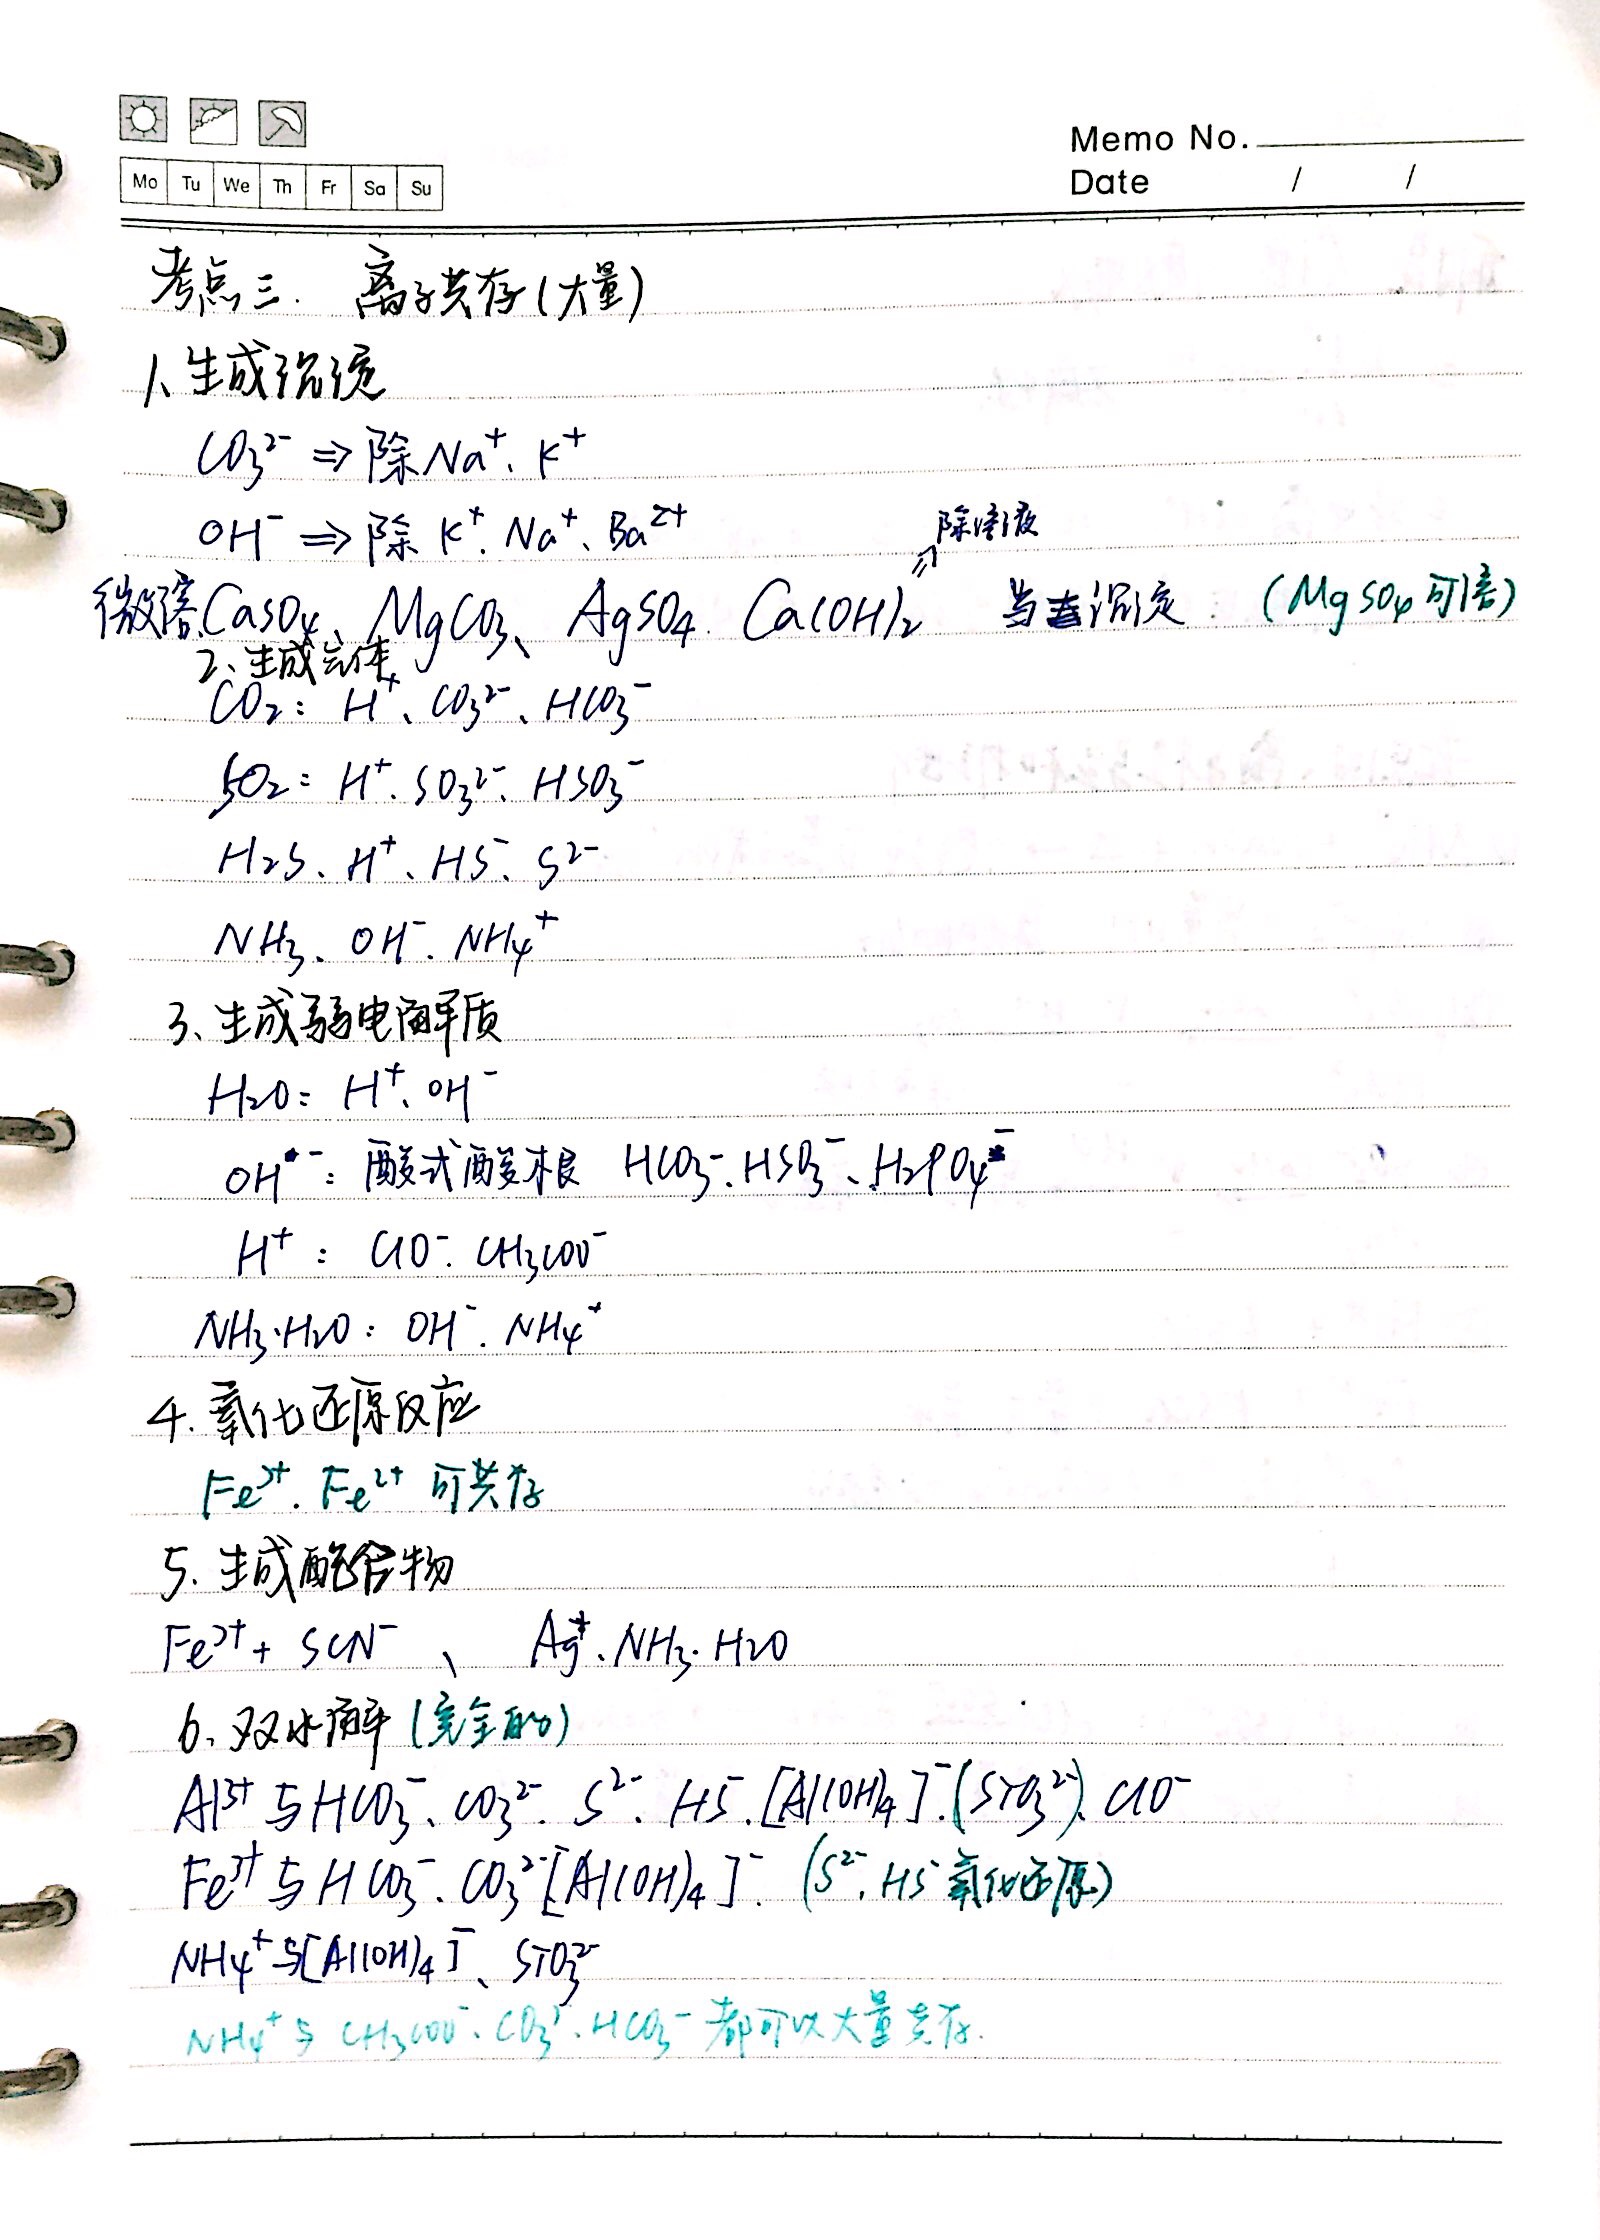 Memo No.
Mo Tu We Th Fr Sa Su
Date / /
考点三. 离子共存(大量)
1、生成沉淀
CO₃²⁻ ⇒ 除Na⁺、K⁺
OH⁻ ⇒ 除 K⁺、Na⁺、Ba²⁺
除溶液
微溶:CaSO₄、MgCO₃、AgSO₄. Ca(OH)₂ 当沉淀. (MgSO₄可溶)
2、生成气体
CO₂: H⁺、CO₃²⁻、HCO₃⁻
SO₂: H⁺、SO₃²⁻、HSO₃⁻
H₂S、H⁺、HS⁻、S²⁻
NH₃、OH⁻、NH₄⁺
3、生成弱电解质
H₂O: H⁺、OH⁻
OH⁻: 酸式酸根 HCO₃⁻、HSO₃⁻、H₂PO₄⁻
H⁺: ClO⁻、CH₃COO⁻
NH₃·H₂O: OH⁻、NH₄⁺
4. 氧化还原反应
Fe³⁺、Fe²⁺ 可共存
5. 生成配合物
Fe³⁺+ SCN⁻ 、 Ag⁺、NH₃·H₂O
6、双水解(完全的)
Al³⁺与HCO₃⁻、CO₃²⁻、S²⁻、HS⁻、[Al(OH)₄]⁻、(SiO₃²⁻)、ClO⁻
Fe³⁺与HCO₃⁻、CO₃²⁻、[Al(OH)₄]⁻. (S²⁻、HS⁻氧化还原)
NH₄⁺与[Al(OH)₄]⁻、SiO₃²⁻
NH₄⁺与 CH₃COO⁻、CO₃²⁻、HCO₃⁻ 都可以大量共存.